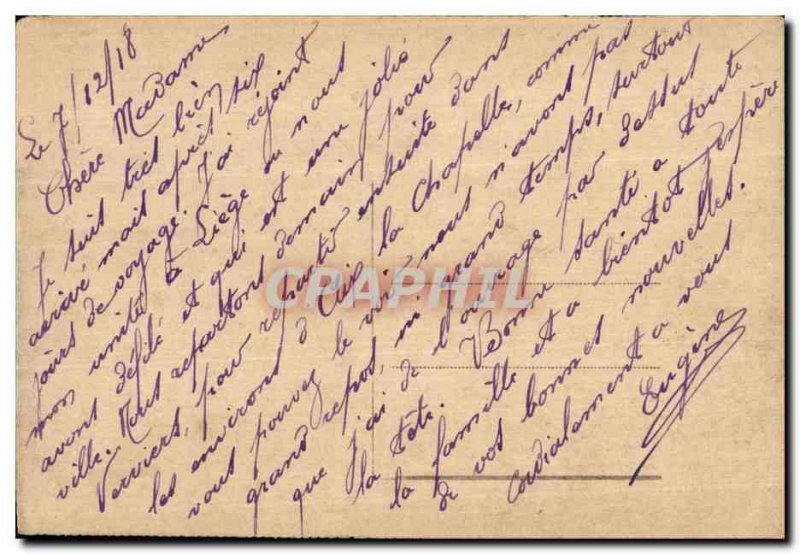 Le 7/12/18
Chère Madame,
Je suis très bien
arrivé mais après six
jours de voyage. J'ai rejoint
mon unité à Liège ou nous
avons défilé et qui est une jolie
ville. Nous repartons demain pour
Verviers, pour ensuite dans
les environs d'Aix la Chapelle, comme
vous pouvez le voir nous n'avons pas
grand repos, ni grand temps, surtout
que j'ai de l'ouvrage par dessus
la tête. Bonne santé a toute
la famille et a bientot j'espère
de vos bonnes nouvelles.
Cordialement a vous
Eugène
CPAPHIL